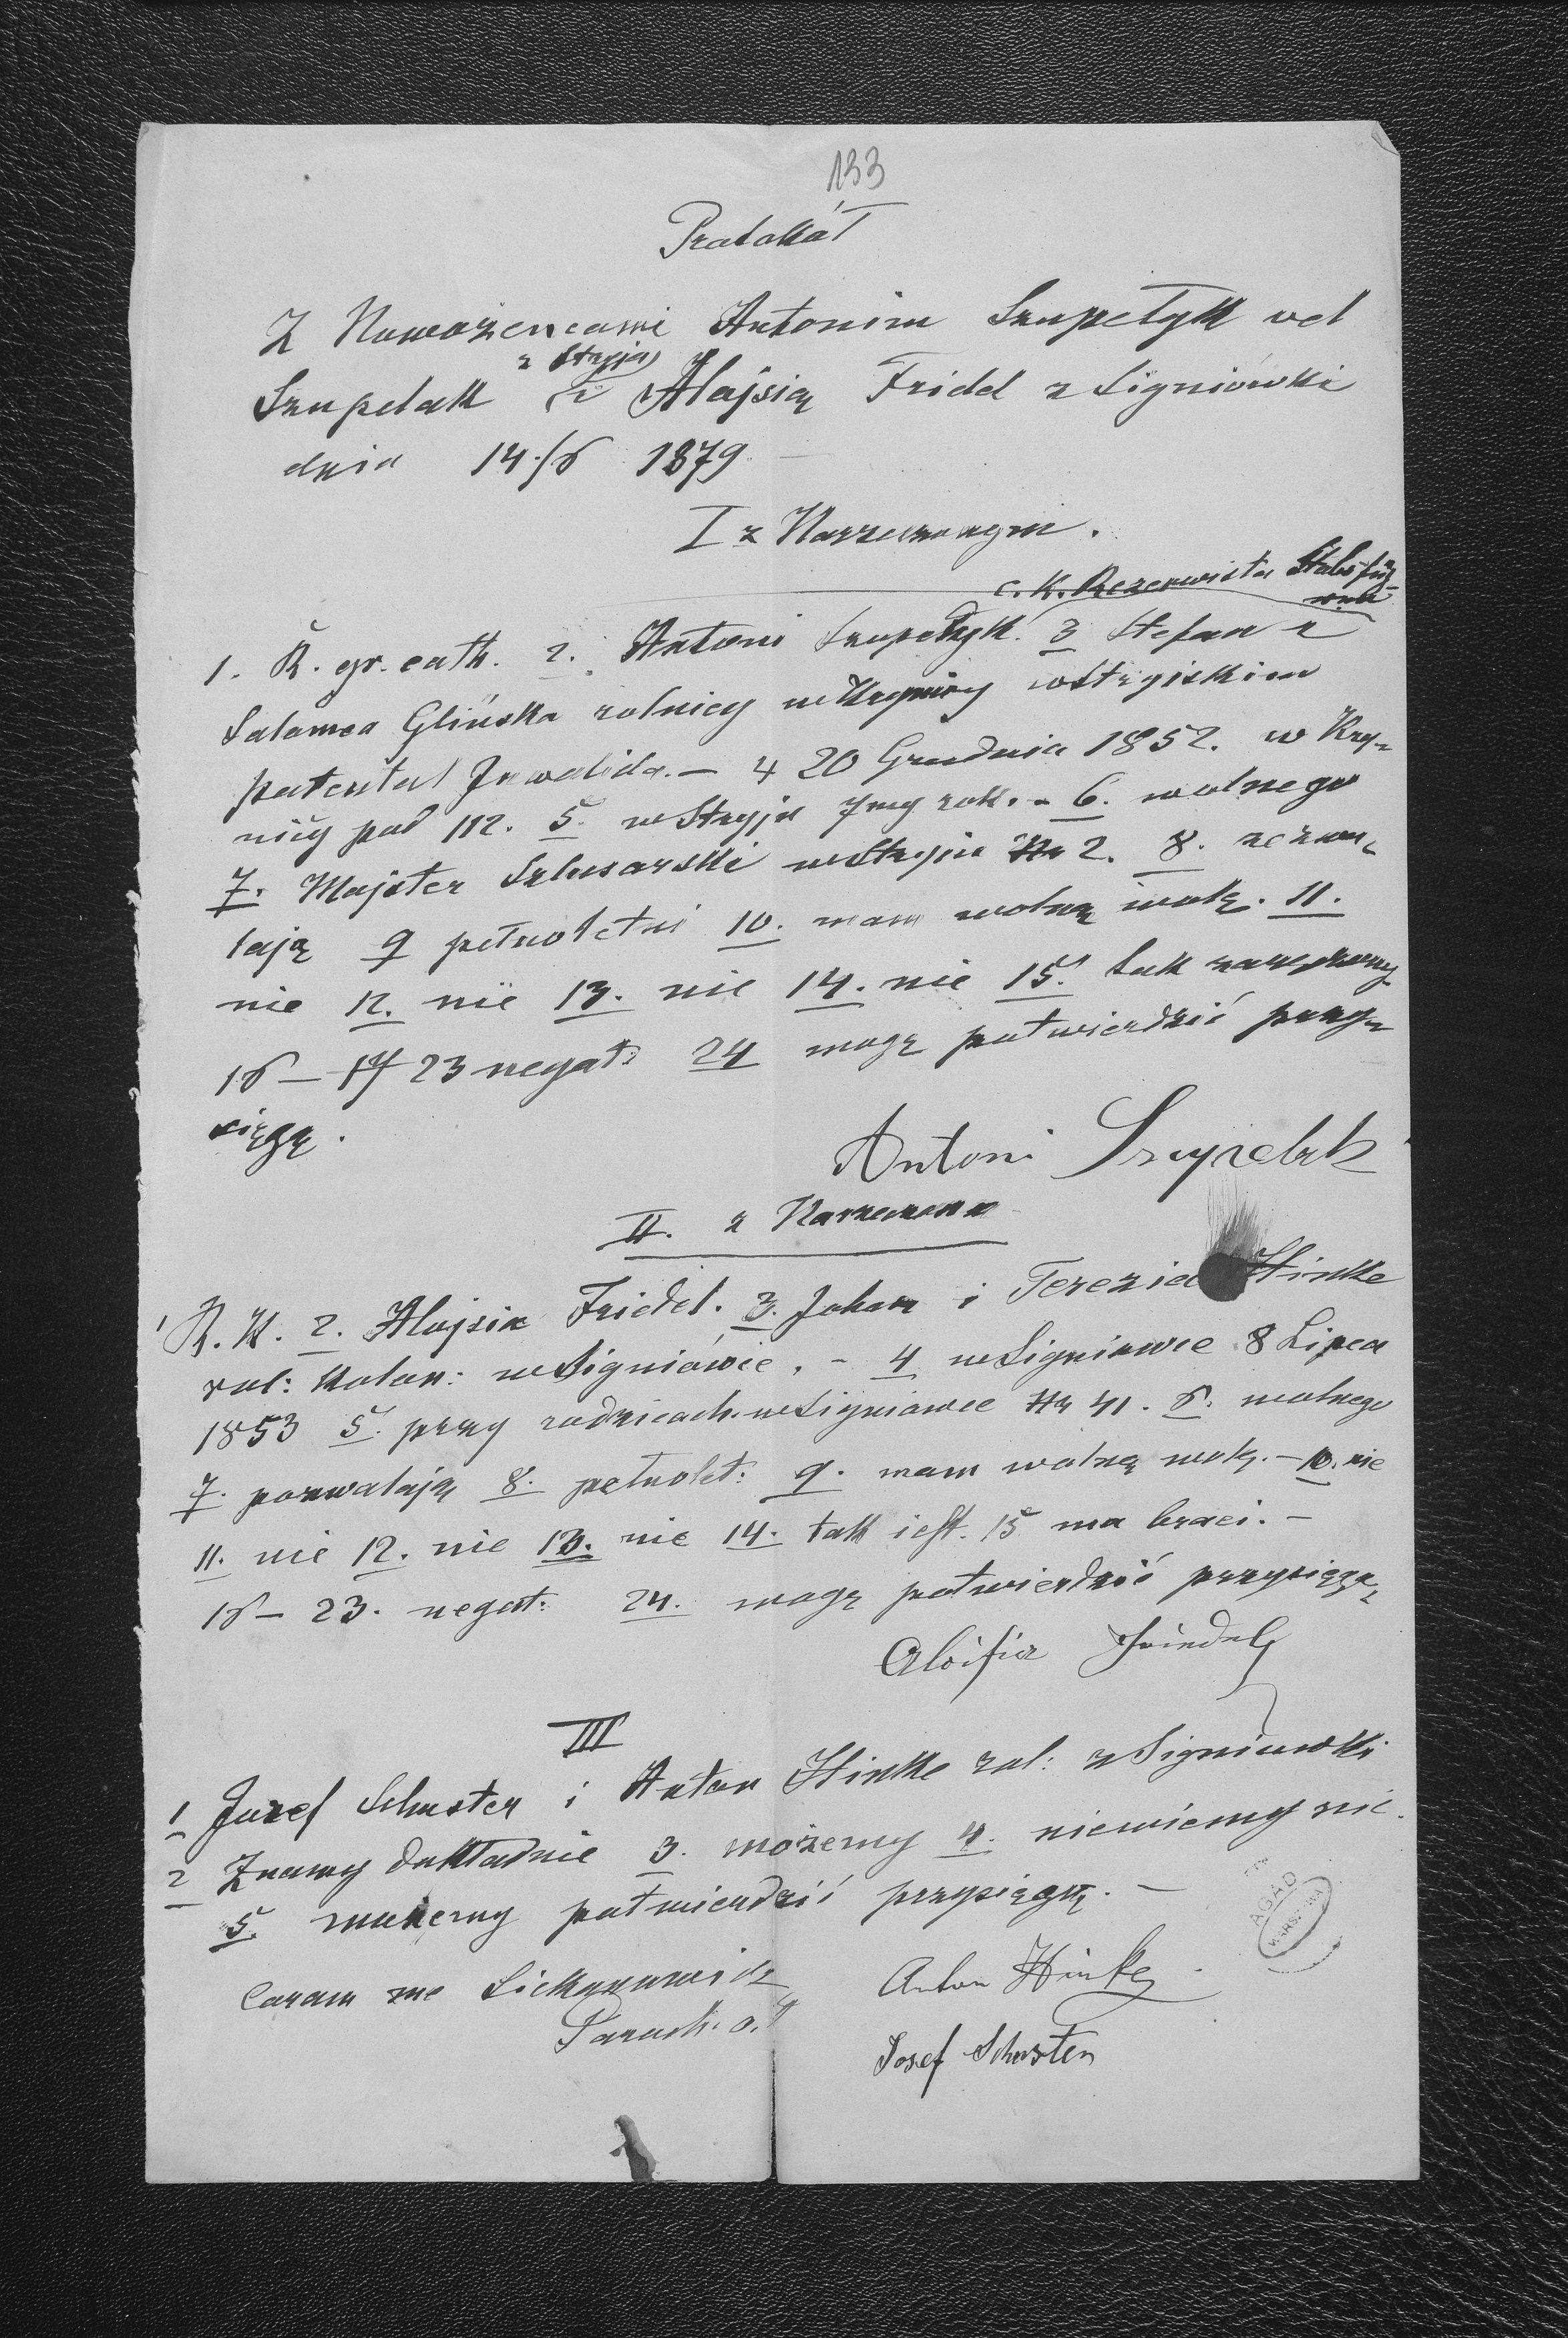 133
Protokół
Z Nowożeńcami Antonim Szupełyk vel
z Stryja
Szupelak i Alojsią Fridel z Ligniówki
dnia 14./6 1879
I z Narzeczonym.
c. k. Rezerwista Stabsfüh-
1. R. gr. cath. 2. Antoni Szupełyk. 3 Stefan z
Salomea Glińska rolnicy w Krynicy w Stryjskim
patental Inwalida. — 4 20 Grudnia 1852. w Kry-
nicy pod 112. 5. w Stryju 7my rok. - 6. wolnego
7. Majster Szlusarski w Stryju Nr 2. 8. zezwa-
lają 9 pełnoletni 10. mam wolną wolę. 11.
nie 12. nie 13. nie 14. nie 15. tak zaręczony
16 — 17 23 negat: 24 mogę potwierdzić przy-
sięgą.
Antoni Szupelak
II. z Narzeczoną
1 R. K. 2. Alojsia Friedel. 3. Johan i Terezia Hinke
rol: kolon: w Ligniówce. - 4 w Ligniowce 8 Lipca
1853 5. przy rodzicach w Ligniowce Nr 41. 6. wolnego
7. pozwalają 8. pełnolet: 9. mam wolną wolę. — 10. nie
11. nie 12. nie 13. nie 14. tak jest. 15 ma braci. —
16 — 23. negat: 24. mogę potwierdzić przysięgą
Aloisia Friedel
III
1 Juzef Schuster i Anton Hinke rol: z Ligniuwki
2 Znamy dokładnie 3. możemy 4. niewiemy nic.
5. mużemy potwierdzić przysięgą. —
Coram me
Anton Hinke
Paroch. o. l.
Josef Schuster
AGAD
WARSZAWA